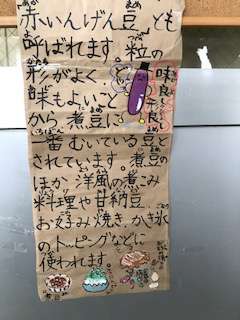 赤いんげん豆とも
呼ばれます。粒の
形がよく、
味もよいこと
から煮豆に
一番むいている豆と
されています。煮豆の
ほか洋風の煮こみ
料理や甘納豆、
お好み焼き、かき氷
のトッピングなどに
使われます。